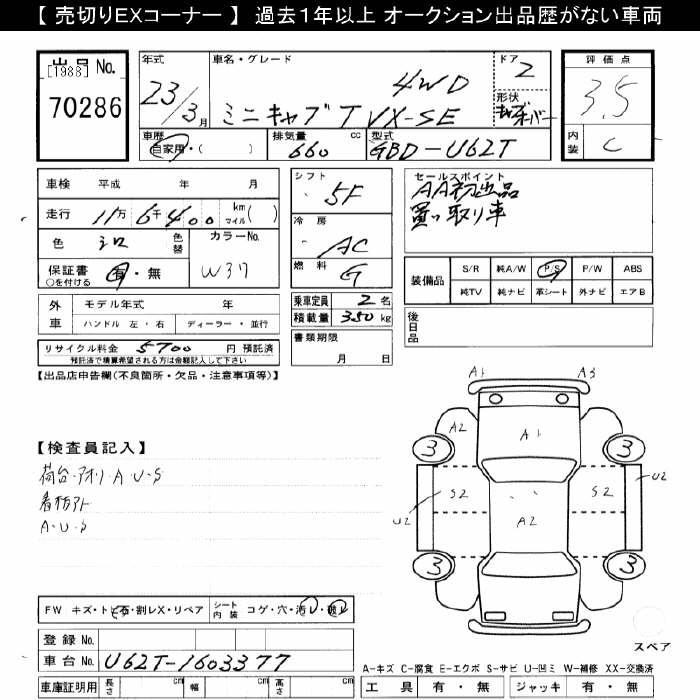 【 売切りEXコーナー 】 過去1年以上 オークション出品歴がない車両
出品 No.
[1988]
70286
年式
23/3月
車名・グレード
4WD
ミニキャブT VX-SE
ドア
2
形状
車歴
自家用・( )
排気量
660 cc
型式
GBD-U62T
評価点
3.5
内装
C
車検 平成 年 月
走行 11万6千400 km マイル( )
色 シロ 色替
カラーNo.
W37
保証書 有・無
○を付ける
外車
モデル年式 年
ハンドル 左・右 ディーラー・並行
リサイクル料金 5700 円 預託済
預託済で積算希望される方は金額記入して下さい
シフト
5F
冷房
AC
燃料
G
乗車定員 2 名
積載量 350 kg
書類期限
月 日
セールスポイント
AA初出品
買い取り車
装備品
S/R 純A/W P/S P/W ABS
純TV 純ナビ 革シート 外ナビ エアB
後日品
【出品店申告欄(不良箇所・欠品・注意事項等)】
【検査員記入】
荷台・アオリ・A・U・S
看板アト
A・U・S
A1 A3
A2 A1
3 3
S2 S2
U2 U2
A2
3 3
スペア
FW キズ・トビ石・割レX・リペア
シート内装 コゲ・穴・汚レ・破レ
登録 No.
車台 No. U62T-1603377
車庫証明用 長さ cm 幅 cm 高さ cm
A-キズ C-腐食 E-エクボ S-サビ U-凹ミ W-補修 XX-交換済
工具 有・無 ジャッキ 有・無